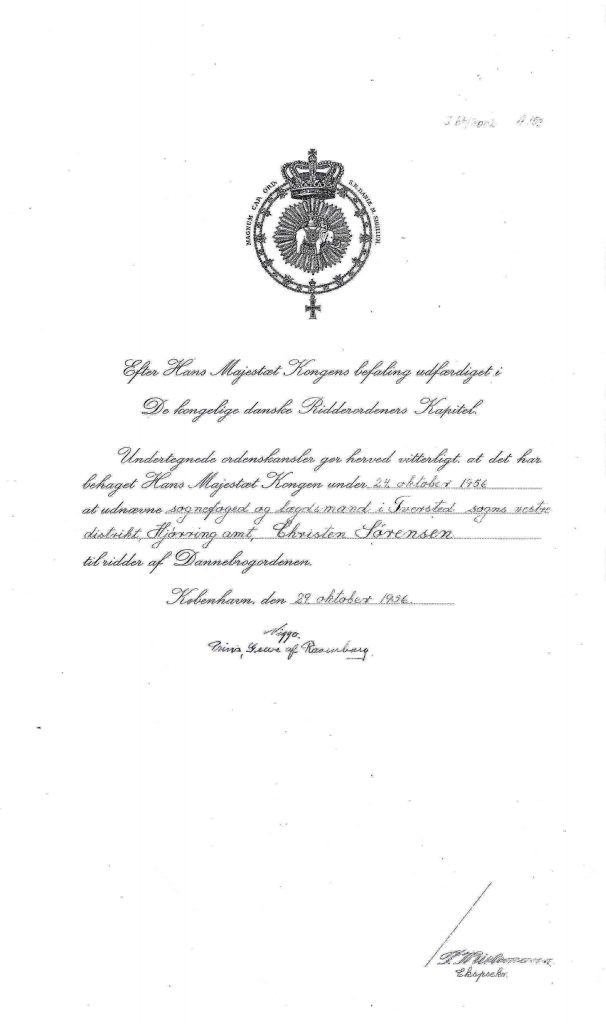 MAGNUM CAP. ORD.
S.R. DANIÆ M. SIGILLUM
Efter Hans Majestæt Kongens befaling udfærdiget i
De kongelige danske Ridderordeners Kapitel.
Undertegnede ordenskansler gør herved vitterligt, at det har
behaget Hans Majestæt Kongen under 24. oktober 1956
at udnævne sognefoged og lægdsmand i Tversted sogns vestre
distrikt, Hjørring amt, Christen Sørensen
til ridder af Dannebrogordenen.
København, den 29. oktober 1956.
Viggo.
Prins, Greve af Rosenborg.
Ekspsekr.